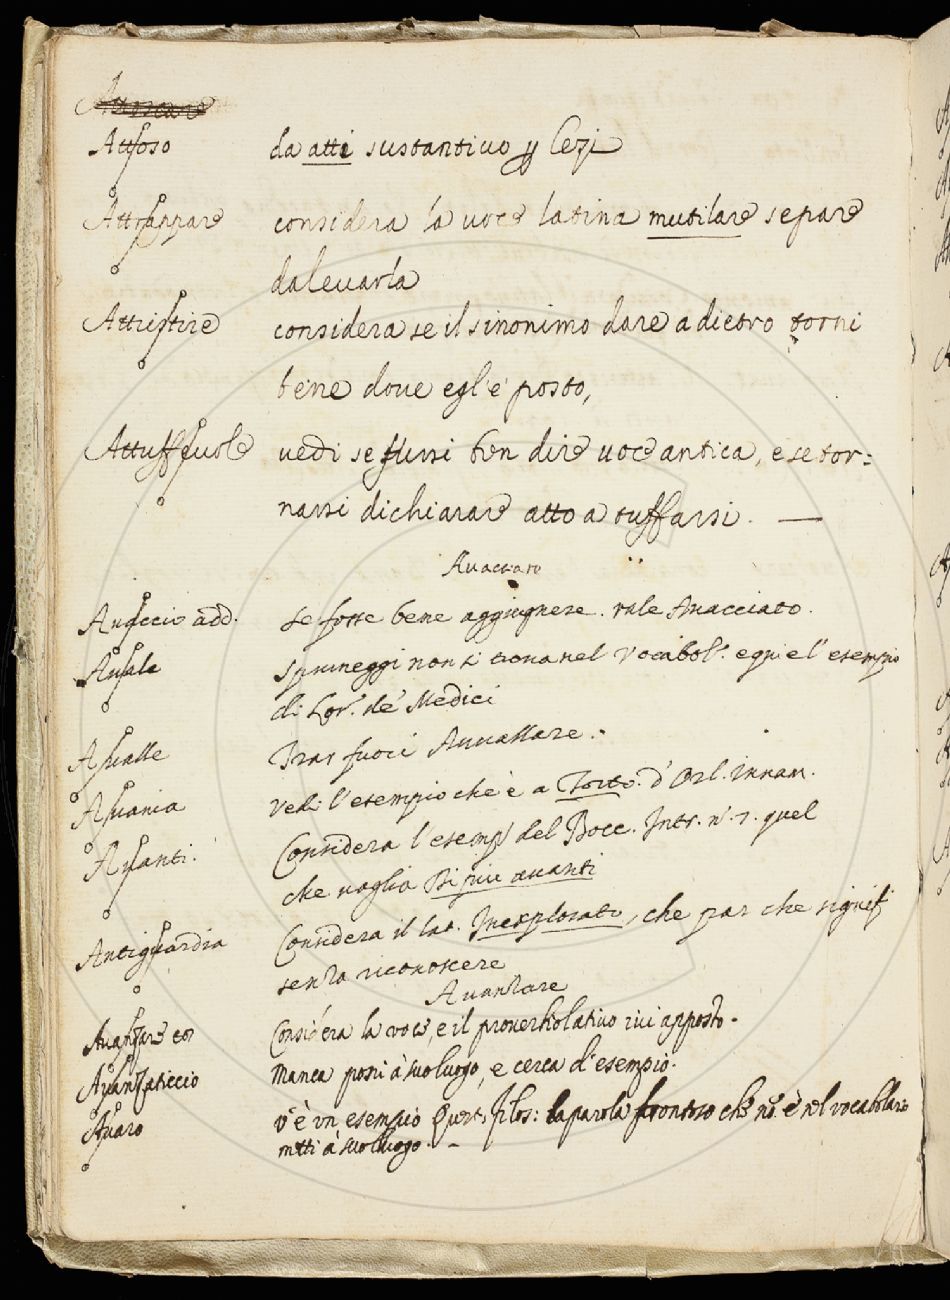 Attoso da atti sustantivo p Lezj
Attrappare considera la voce latina mutilare se pare
da levarla
Attristire considera se il sinonimo dare a dietro torni
bene dove egl'è posto,
Attuffevole vedi se fussi ben dire voce antica, e se tor=
nassi dichiarare atto a tuffarsi. —
Avacciato
Avaccio add. se fosse bene aggiugnere. vale Avacciato.
Avale spuneggi non si trova nel Vocabol.º e qui è l'esempio
di Lor. de' Medici
Avalle Tras fuori Avvallare.
Avania Vedi l'esempio che è a Torto. d'Orl. Innam.
Avanti. Considera l'esemp. del Bocc. Intr. n. 7. quel
che voglia Di piu avanti
Antiguardia Considera il lat. Inexplorato, che par che signif.
senza riconoscere
Avanzare
Avanzare Considera la voce, e il proverbio lativo ivi apposto.
Avanzaticcio Manca poni à suo luogo, e cerca d'esempio.
Avaro v'è un esempio Quist. filos: la parola frontoso che nõ è nel vocabolario
metti à suo luogo. —